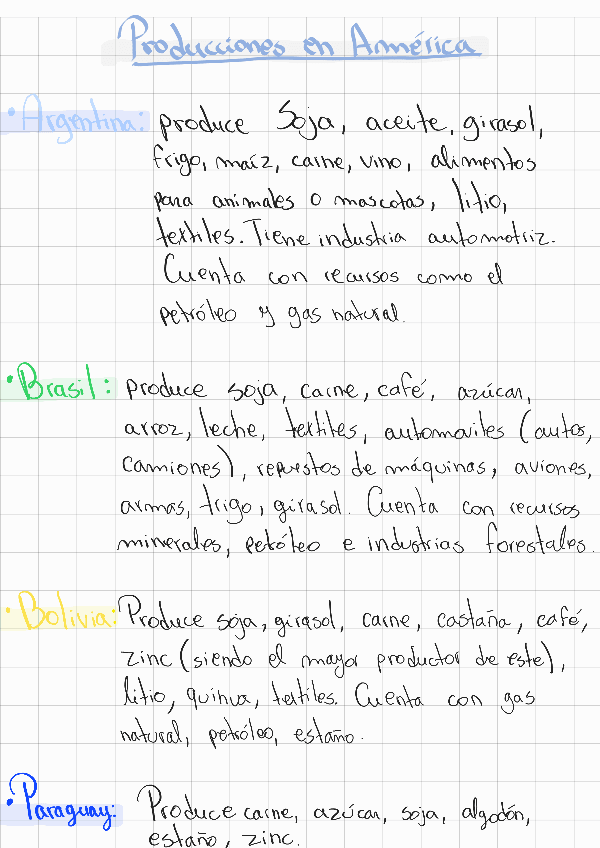 Producciones en América
• Argentina: produce Soja, aceite, girasol,
trigo, maíz, carne, vino, alimentos
para animales o mascotas, litio,
textiles. Tiene industria automotriz.
Cuenta con recursos como el
petróleo y gas natural.
• Brasil: produce soja, carne, café, azúcar,
arroz, leche, textiles, (autos,
camiones), repuestos de máquinas, aviones,
armas, trigo, girasol. Cuenta con recursos
minerales, petróleo e industrias forestales.
• Bolivia: Produce soja, girasol, carne, castaña, café,
zinc (siendo el mayor productor de este),
litio, quinua, textiles. Cuenta con gas
natural, petróleo, estaño.
• Paraguay: Produce carne, azúcar, soja, algodón,
estaño, zinc.